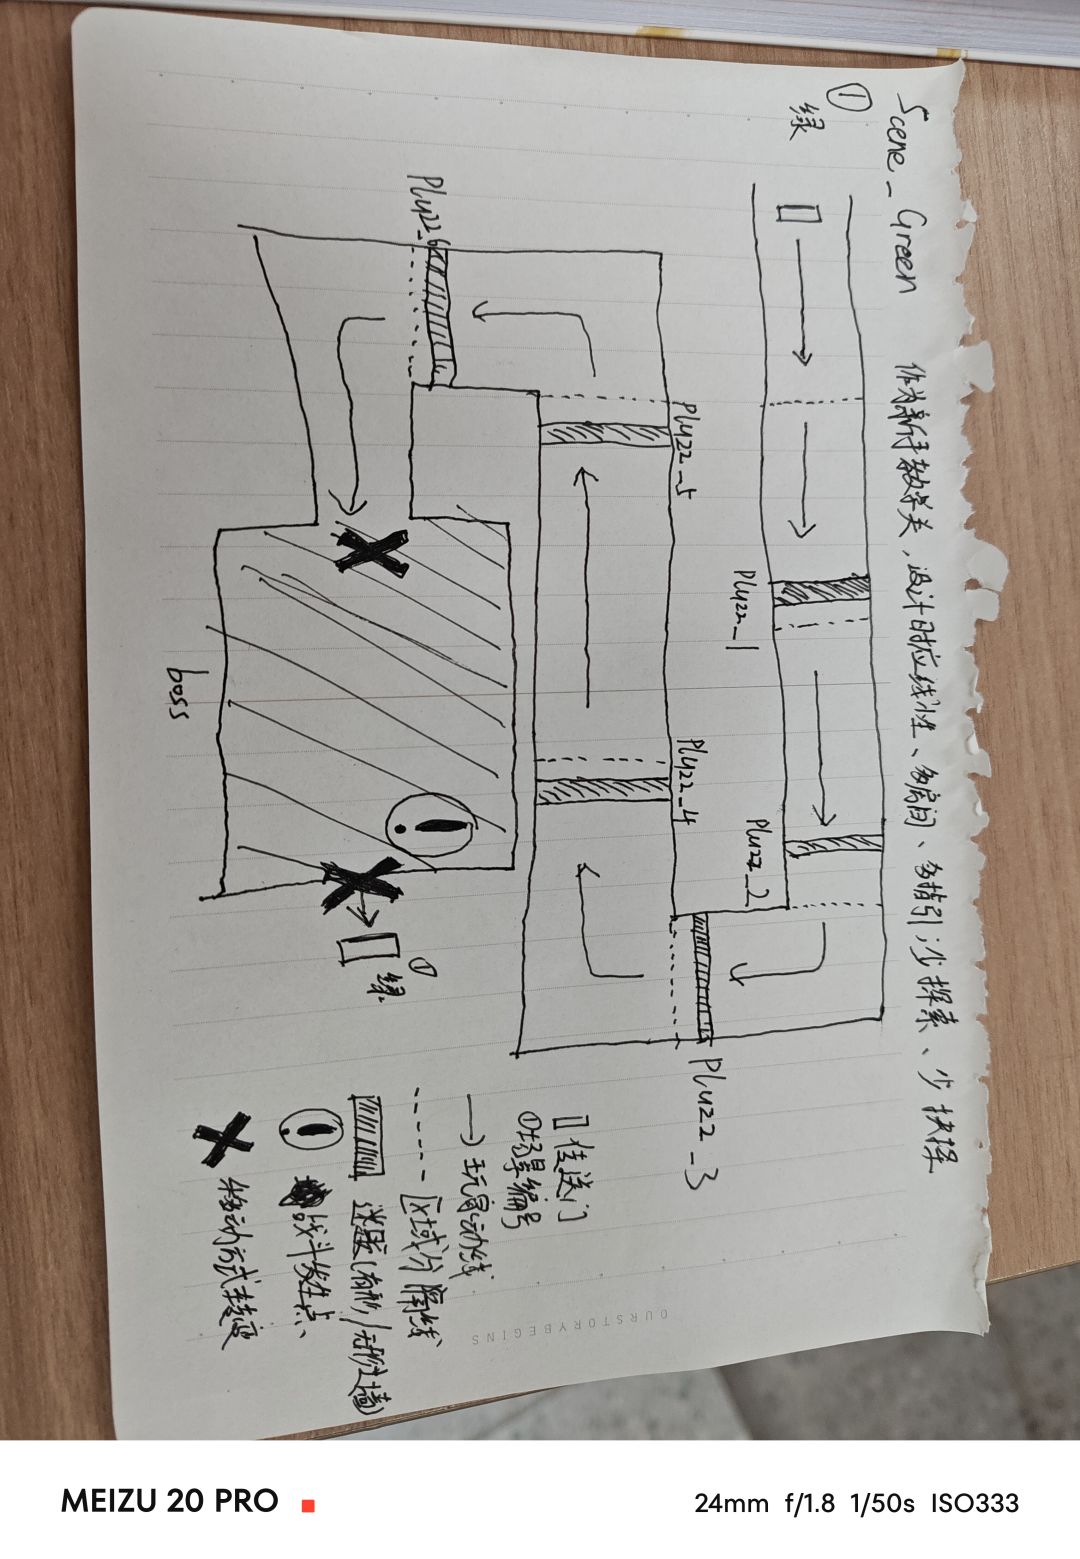 Scene_Green
作为新手教学关、设计时应线性、多房间、多指引、少探索、少抉择
①
绿
Pluzz_1
Pluzz_2
Pluzz_3
Pluzz_4
Pluzz_5
Pluzz_6
boss
①
绿
传送门
①场景编号
→玩家动线
区域分隔线
迷题(有形/无形之墙)
战斗发生点
移动方式转变
OURSTORYBEGINS
MEIZU 20 PRO
24mm f/1.8 1/50s ISO333